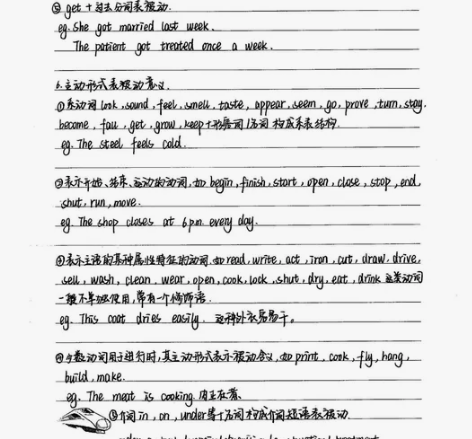 ⑤ get + 过去分词表被动.
eg. She got married last week.
The patient got treated once a week.
6. 主动形式表被动意义.
①系动词 look, sound, feel, smell, taste, appear, seem, go, prove, turn, stay,
become, fall, get, grow, keep + 形容词/名词 构成系表结构.
eg. The steel feels cold.
②表示开始、结束、运动的动词, 如 begin, finish, start, open, close, stop, end,
shut, run, move.
eg. The shop closes at 6 p.m. every day.
③表示主语的某种属性特征的动词, 如 read, write, act, iron, cut, draw, drive,
sell, wash, clean, wear, open, cook, lock, shut, dry, eat, drink 这类动词
一般不单独使用, 常有一个修饰语.
eg. This coat dries easily. 这种外衣易干.
④少数动词用于进行时, 其主动形式表示被动含义, 如 print, cook, fly, hang,
build, make.
eg. The meat is cooking. 肉正在煮.
⑤介词 in, on, under 等+名词构成介词短语表被动.